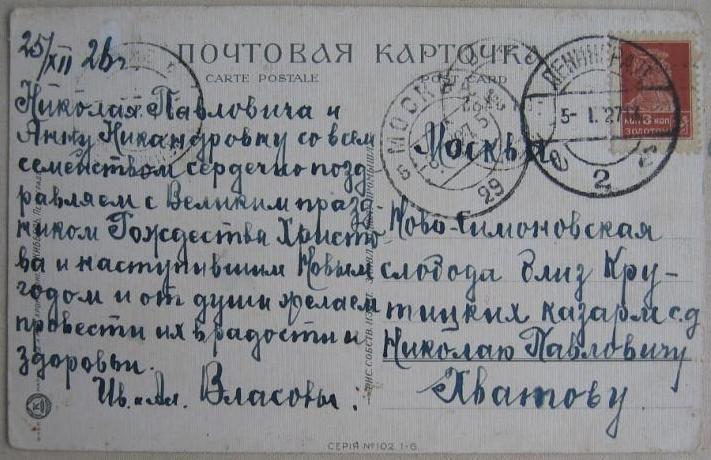 25/XII 26 г
ПОЧТОВАЯ КАРТОЧКА
CARTE POSTALE POST CARD
Николая Павловича и
Анну Никандровну со всем
семейством сердечно позд
равляем с Великим празд-
ником Рождества Христо
ва и наступившим Новым
годом и от души желаем
провести их в радости и
здоровьи.
Ив. и Ал. Власовы.
МОСКВА
29
ЛЕНИНГРАД
5- 1. 27
2
3 КОП
ЗОЛОТОМ
Москва
Ново-Симоновская
слобода близ Кру-
тицких казарм с.д
Николаю Павловичу
Хватову
СЕРІЯ №102 1-6.